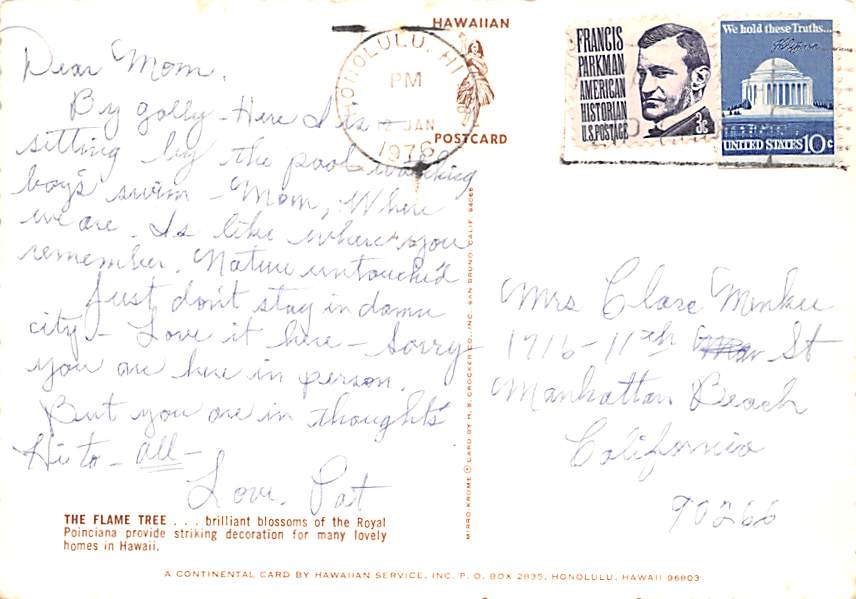 HAWAIIAN
POSTCARD
HONOLULU, HI
PM
12 JAN
1976
FRANCIS
PARKMAN
AMERICAN
HISTORIAN
U.S. POSTAGE
3c
We hold these Truths...
UNITED STATES 10c
Dear Mom,
By golly - Here I is -
sitting by the pool watching
boy's swim - Mom, Where
we are. Is like where you
remember. Nature untouch'd
Just don't stay in damn
city - Love it here - Sorry
you are here in person.
But you are in thoughts
Hi to - all -
Love. Pat
Mrs Clare
1716 - 11th St
Manhattan Beach
California
90266
THE FLAME TREE . . . brilliant blossoms of the Royal
Poinciana provide striking decoration for many lovely
homes in Hawaii.
MIRRO-KROME CARD BY H. S. CROCKER CO., INC. SAN BRUNO, CALIF. 94066
A CONTINENTAL CARD BY HAWAIIAN SERVICE, INC. P. O. BOX 2835, HONOLULU, HAWAII 96803